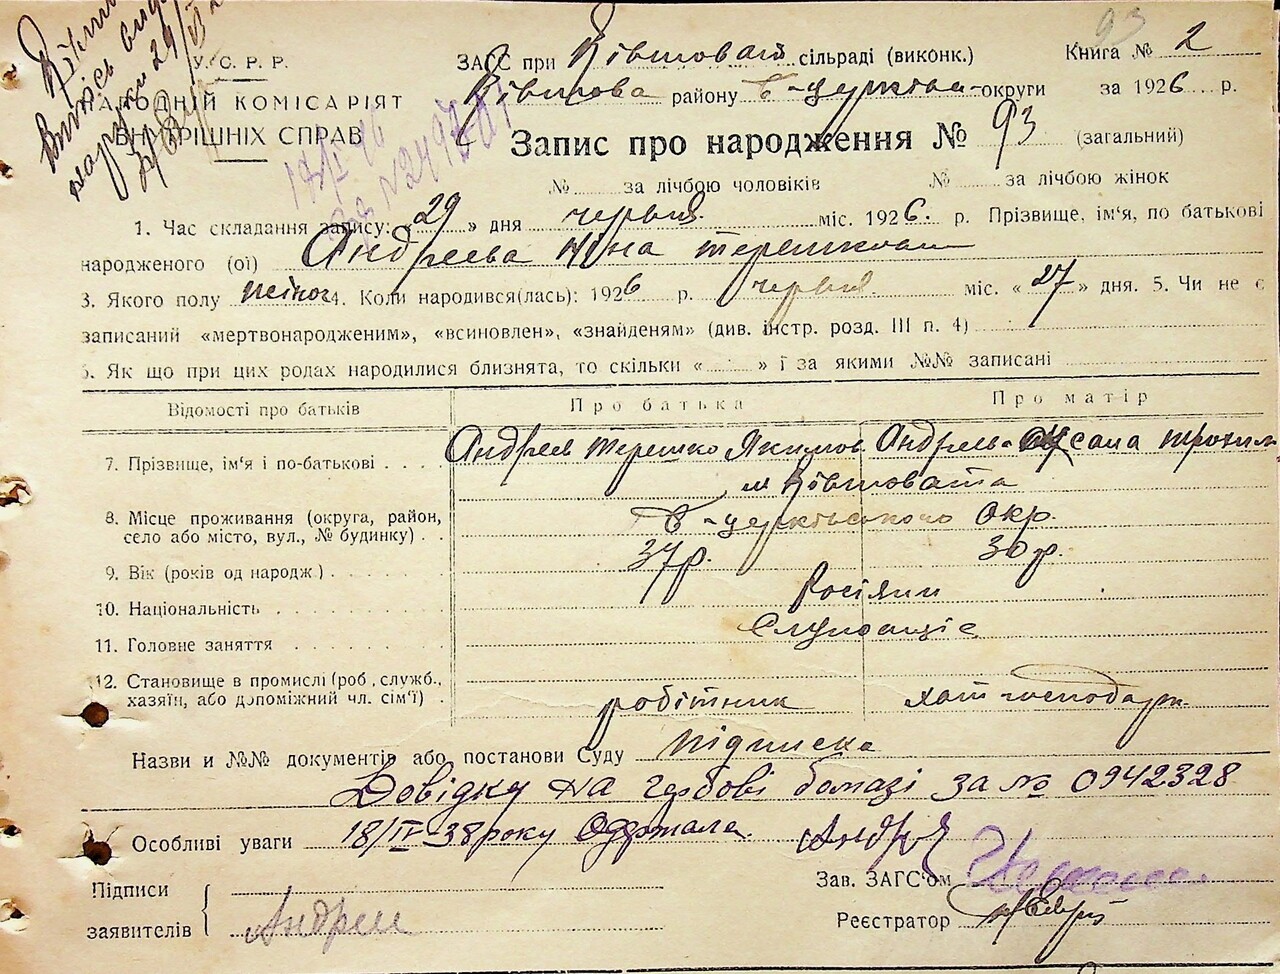 Витяг видан
29/VI
93
У. С. Р. Р.
НАРОДНІЙ КОМІСАРІЯТ
ВНУТРІШНІХ СПРАВ
ЗАГС при сільраді (виконк.) Книга № 2
району Б-церківа округи за 1926 р.
Запис про народження № 93 (загальний)
№ за лічбою чоловіків № за лічбою жінок
1. Час складання запису: «29» дня червня міс. 1926. р. Прізвище, ім'я, по батькові
народженого (ої) Андреева Ніна Терешкова
3. Якого полу жіноч 4. Коли народився(лась): 1926 р. червня міс. «27» дня. 5. Чи не є
записаний «мертвонародженим», «всиновлен», «знайденям» (див. інстр. розд. III п. 4)
6. Як що при цих родах народилися близнята, то скільки « » і за якими №№ записані
Відомості про батьків Про батька Про матір
7. Прізвище, ім'я і по-батькові Андреев Терешко Якимов Андреева Оксана Трохим
м
8. Місце проживання (округа, район, село або місто, вул., № будинку) Б-церківського Окр.
9. Вік (років од народж) 37 р. 30 р.
10. Національність Росіяни
11. Головне заняття Служащіе
12. Становище в промислі (роб, служб., хазяїн, або допоміжний чл. сім'ї) робітник хат господарк.
Назви и №№ документів або постанови Суду підписка
Довідку на гербові бомазі за № 0942328
Особливі уваги 18/IV-38 року Одержала. Андр
Підписи
заявителів Андрее
Зав. ЗАГС'ом
Реєстратор